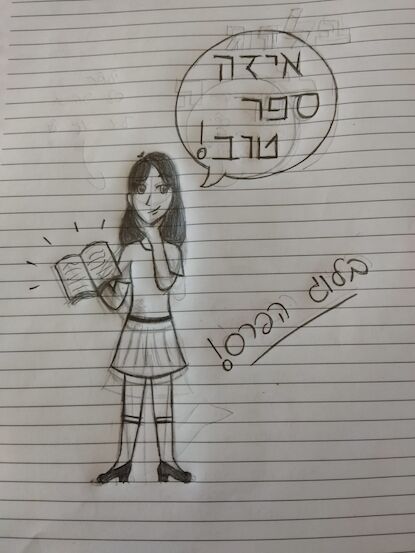 איזה
ספר
טוב!
בלוג הפרס!